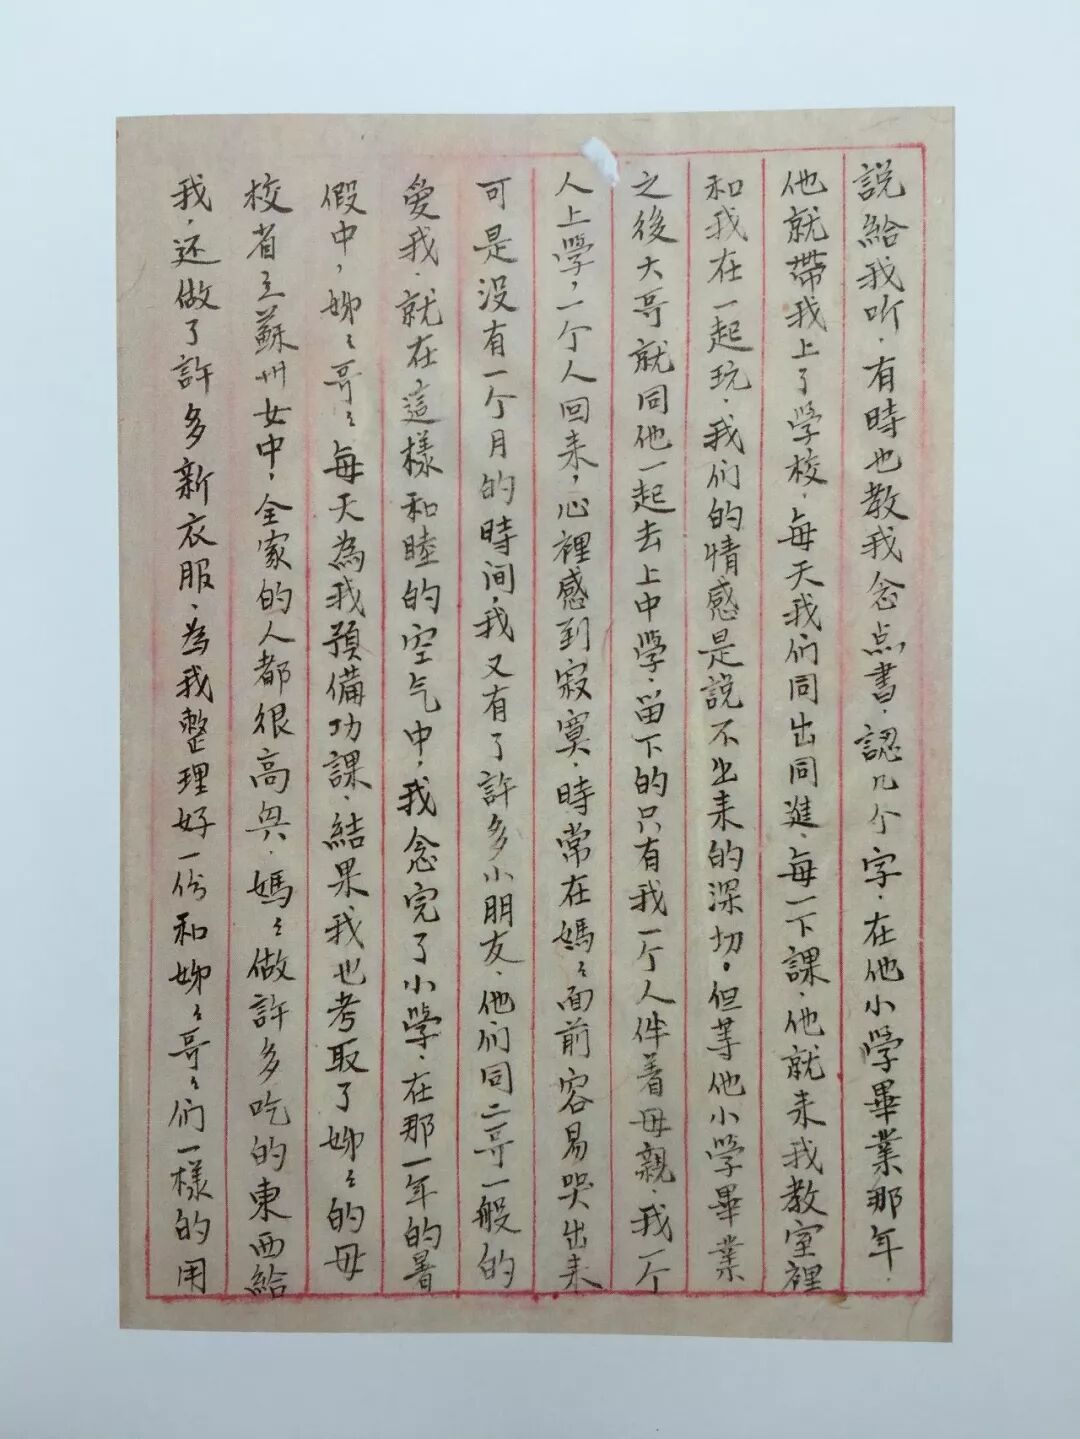 説給我听．有時也教我念点書．認几个字．在他小学畢業那年．
他就帶我上了学校．每天我们同出同進．每一下課．他就来我教室裡
和我在一起玩．我们的情感是説不出来的深切。但等他小学畢業
之後大哥就同他一起去上中学．留下的只有我一个人伴着母親．我一个
人上学，一个人回来，心裡感到寂寞．時常在媽〻面前容易哭出来
可是没有一个月的時间，我又有了許多小朋友．他们同二哥一般的
愛我．就在這樣和睦的空气中，我念完了小学．在那一年的暑
假中，姊〻哥〻每天為我預備功課．結果我也考取了姊〻的母
校省立蘇州女中，全家的人都很高兴．媽〻做許多吃的東西給
我．还做了許多新衣服．為我整理好一份和姊〻哥〻们一樣的用